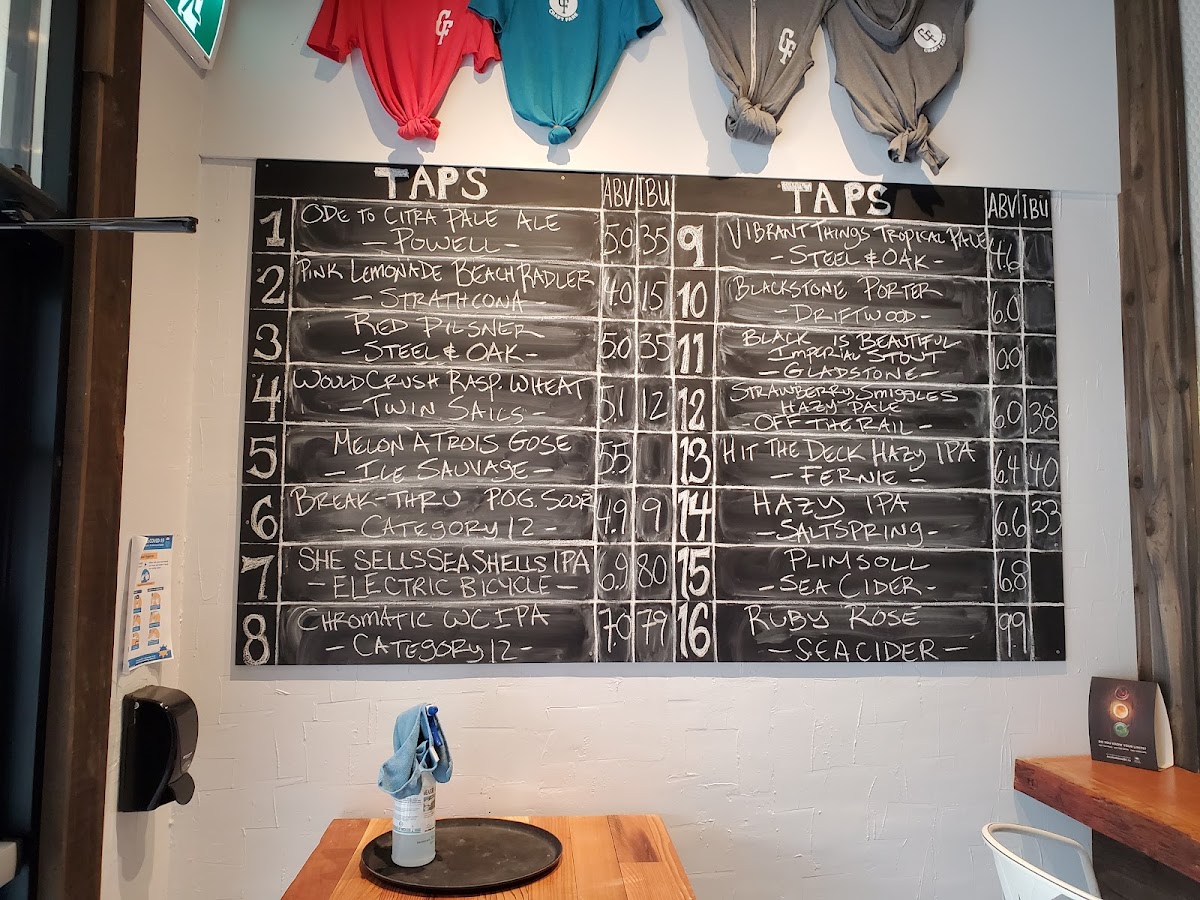 CF
CF
CRAFT FARE
CF
CF
TAPS ABV IBU
1 ODE TO CITRA PALE ALE 5.0 35
- POWELL -
2 PINK LEMONADE BEACH RADLER 4.0 15
- STRATHCONA -
3 RED PILSNER 5.0 35
- STEEL & OAK -
4 WOULD CRUSH RASP. WHEAT 5.1 12
- TWIN SAILS -
5 MELON A TROIS GOSE 5.5
- ILE SAUVAGE -
6 BREAK-THRU P.O.G. SOUR 4.9 9
- CATEGORY 12 -
7 SHE SELLS SEA SHELLS IPA 6.9 80
- ELECTRIC BICYCLE -
8 CHROMATIC WC IPA 7.0 79
- CATEGORY 12 -
TAPS ABV IBU
9 VIBRANT THINGS TROPICAL PALE 4.6
- STEEL & OAK -
10 BLACKSTONE PORTER 6.0
- DRIFTWOOD -
11 BLACK IS BEAUTIFUL 10.0
IMPERIAL STOUT
- GLADSTONE -
12 STRAWBERRY SMIGGLES 6.0 38
HAZY PALE
- OFF THE RAIL -
13 HIT THE DECK HAZY IPA 6.4 40
- FERNIE -
14 HAZY IPA 6.6 33
- SALTSPRING -
15 PLIMSOLL 6.8
- SEA CIDER -
16 RUBY ROSE 9.9
- SEA CIDER -
COVID-19